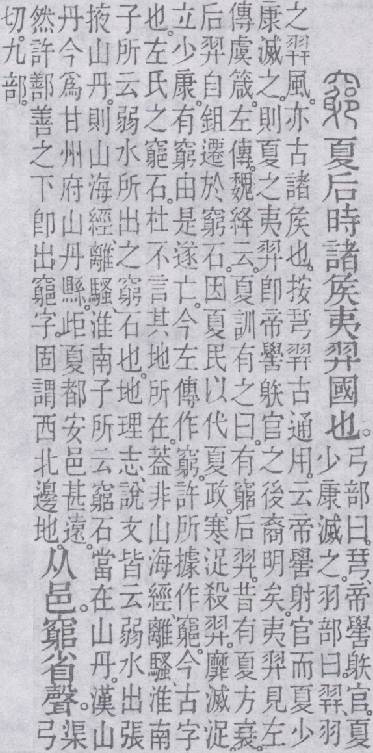 竆夏后時諸矦夷羿國也。弓部曰。𢎗、帝嚳䠶官。夏
少康滅之。羽部曰。羿、羽
之羿風。亦古諸矦也。按𢎗羿古通用。云帝嚳射官而夏少
康滅之。則夏之夷羿卽帝嚳䠶官之後裔明矣。夷羿見左
傳虞箴。左傳。魏絳云。夏訓有之曰。有竆后羿。昔有夏方衰。
后羿自鉏遷於竆石。因夏民以代夏政。寒浞殺羿。靡滅浞
立少康。有竆由是遂亡。今左傳作窮。許所據作竆。今古字
也。左氏之竆石。杜不言其地所在。葢非山海經離騷、淮南
子所云弱水所出之窮石也。地理志、說文皆云弱水出張
掖山丹。則山海經、離騷、淮南子所云窮石當在山丹。漢山
丹今爲甘州府山丹縣。歫夏都安邑甚遠。
然許鄯善之下卽出竆字。固謂西北邊地。从邑。窮省聲。渠弓
切。九部。